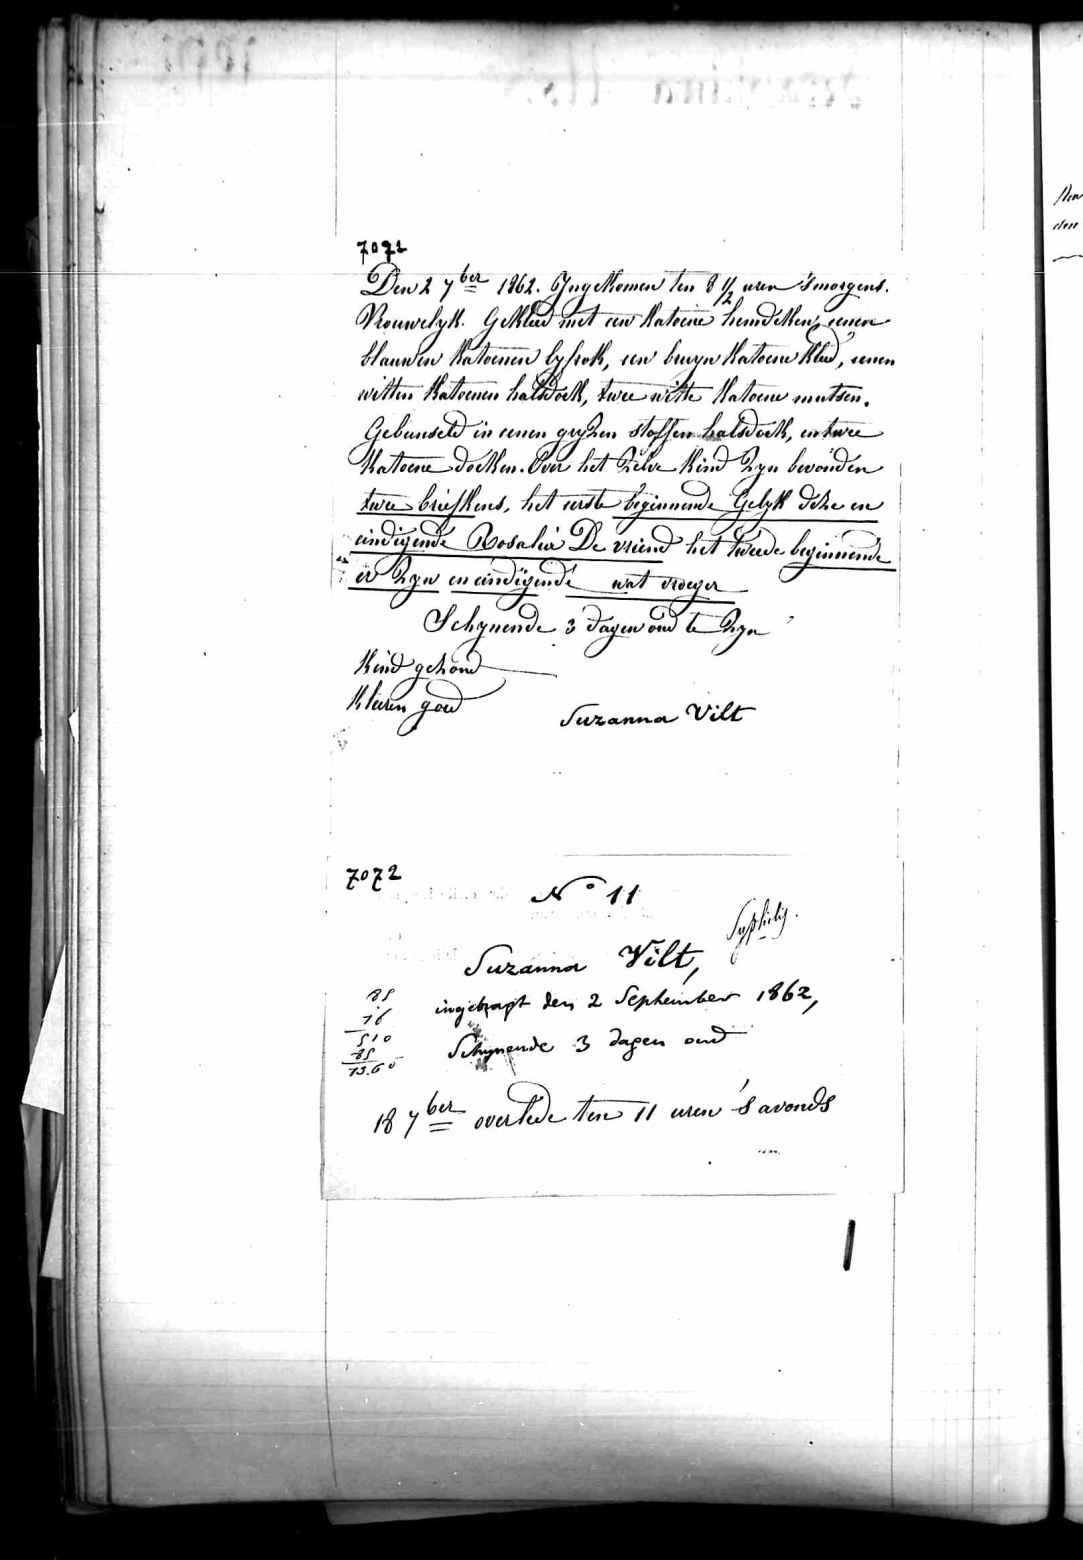 7071
Den 2 7ber 1862. Ingekomen ten 8 1/2 uren 's morgens.
Vrouwelyk. Gekleed met een katoene hemdeken, eenen
blauwen katoenen lyfrok, een bruyn katoene kleed, eenen
witten katoenen halsdoek, twee witte katoene mutsen.
Gebunseld in eenen gryzen stoffen halsdoek, en twee
katoene doeken. Over het zelve kind zyn bevonden
twee briefkens, het eerste beginnende Gelyk deze en
eindigende Rosalia De vriend het tweede beginnende
er zyn en eindigende wat vroeger
Schynende 3 dagen oud te zyn
Kind gezond
Kleeren goed
Suzanna Vilt
7072
No 11
Syphilis.
Suzanna Vilt,
85
16
ingebragt den 2 September 1862,
510
85
Schynende 3 dagen oud
13.60
18 7ber overlede ten 11 uren 's avonds